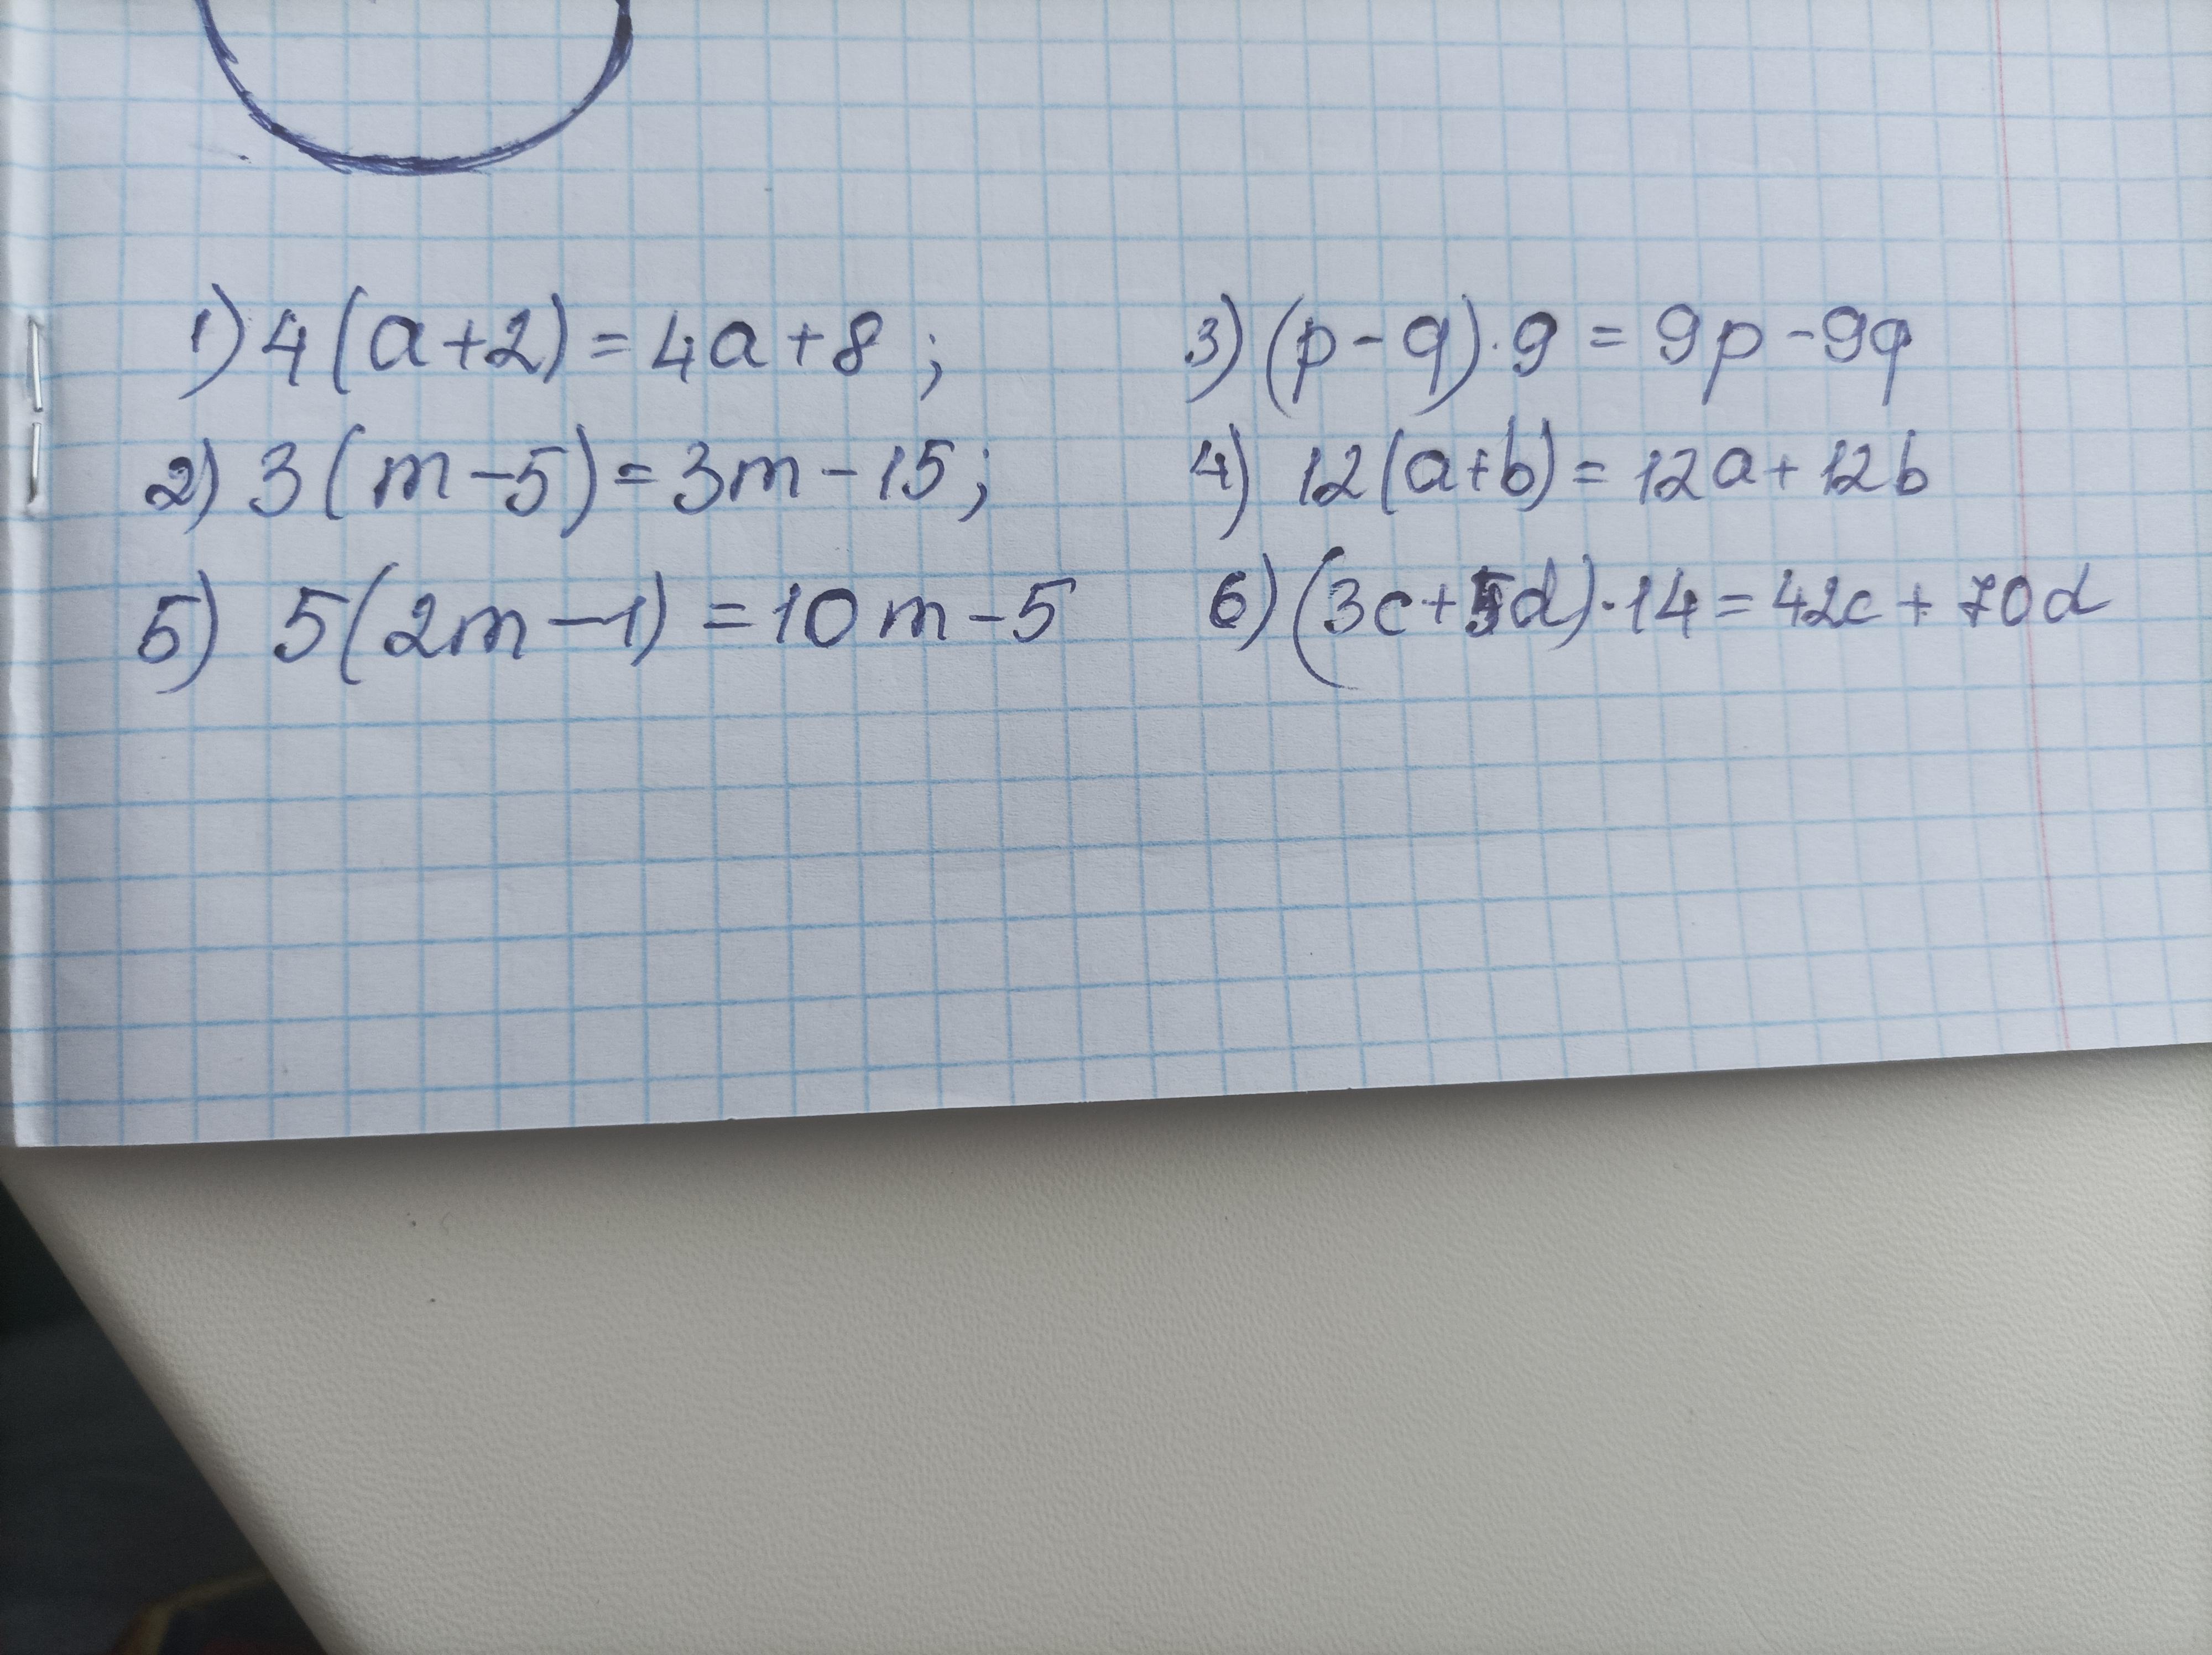 1) 4(a+2)=4a+8;
2) 3(m-5)=3m-15;
5) 5(2m-1)=10m-5
3) (p-q)·9=9p-9q
4) 12(a+b)=12a+12b
6) (3c+5d)·14=42c+70d